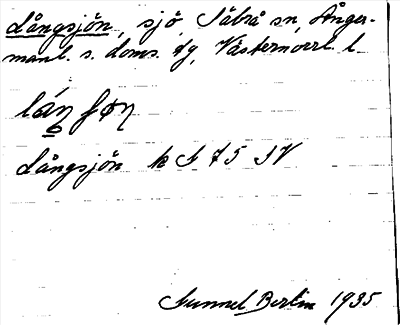 Långsjön, sjö, Säbrå sn, Ånger-
manl. s. doms. tg, Västernorrl. l.
Långsjön k S 75 SV
Gunnel Bertin 1935